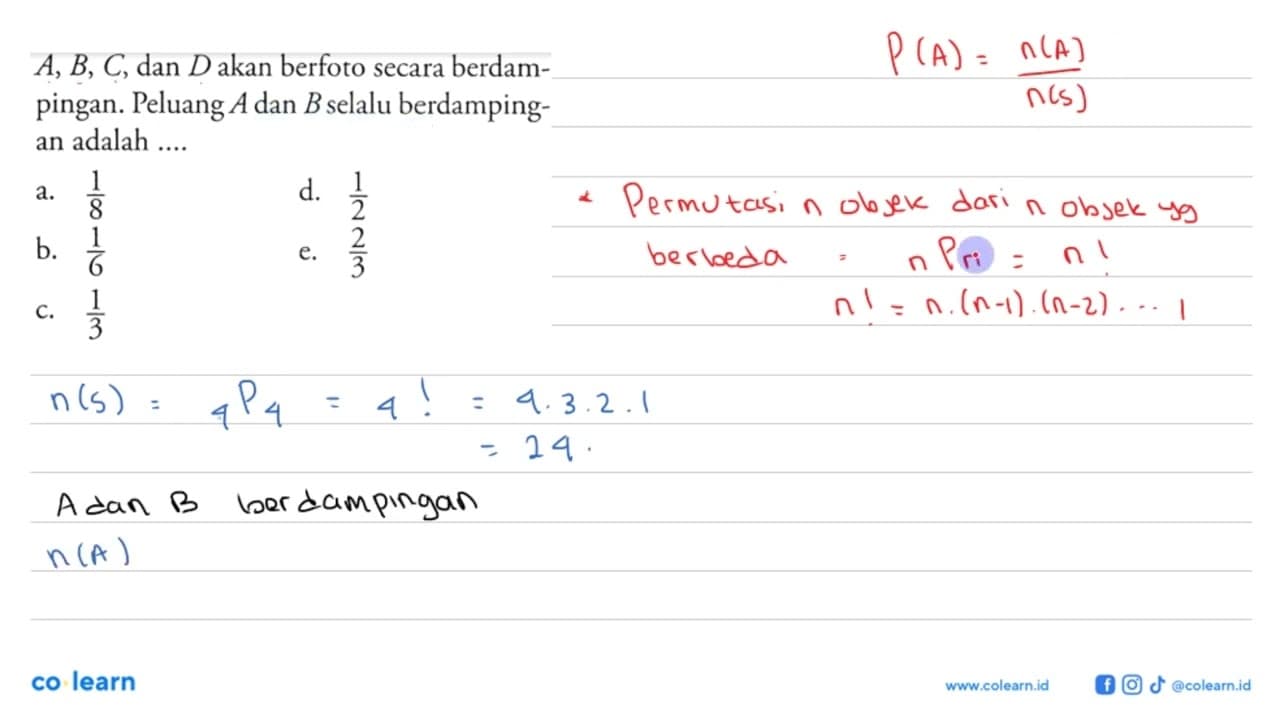 A, B, C, dan D akan berfoto secara berdam-
pingan. Peluang A dan B selalu berdamping-
an adalah ....
a. 1/8
b. 1/6
c. 1/3
d. 1/2
e. 2/3
P(A) = n(A)/n(S)
* Permutasi n objek dari n objek yg
berbeda = nPn = n!
n! = n.(n-1).(n-2). ... 1
n(S) = 4P4 = 4! = 4.3.2.1
= 24.
A dan B berdampingan
n(A)
co learn
www.colearn.id
@colearn.id